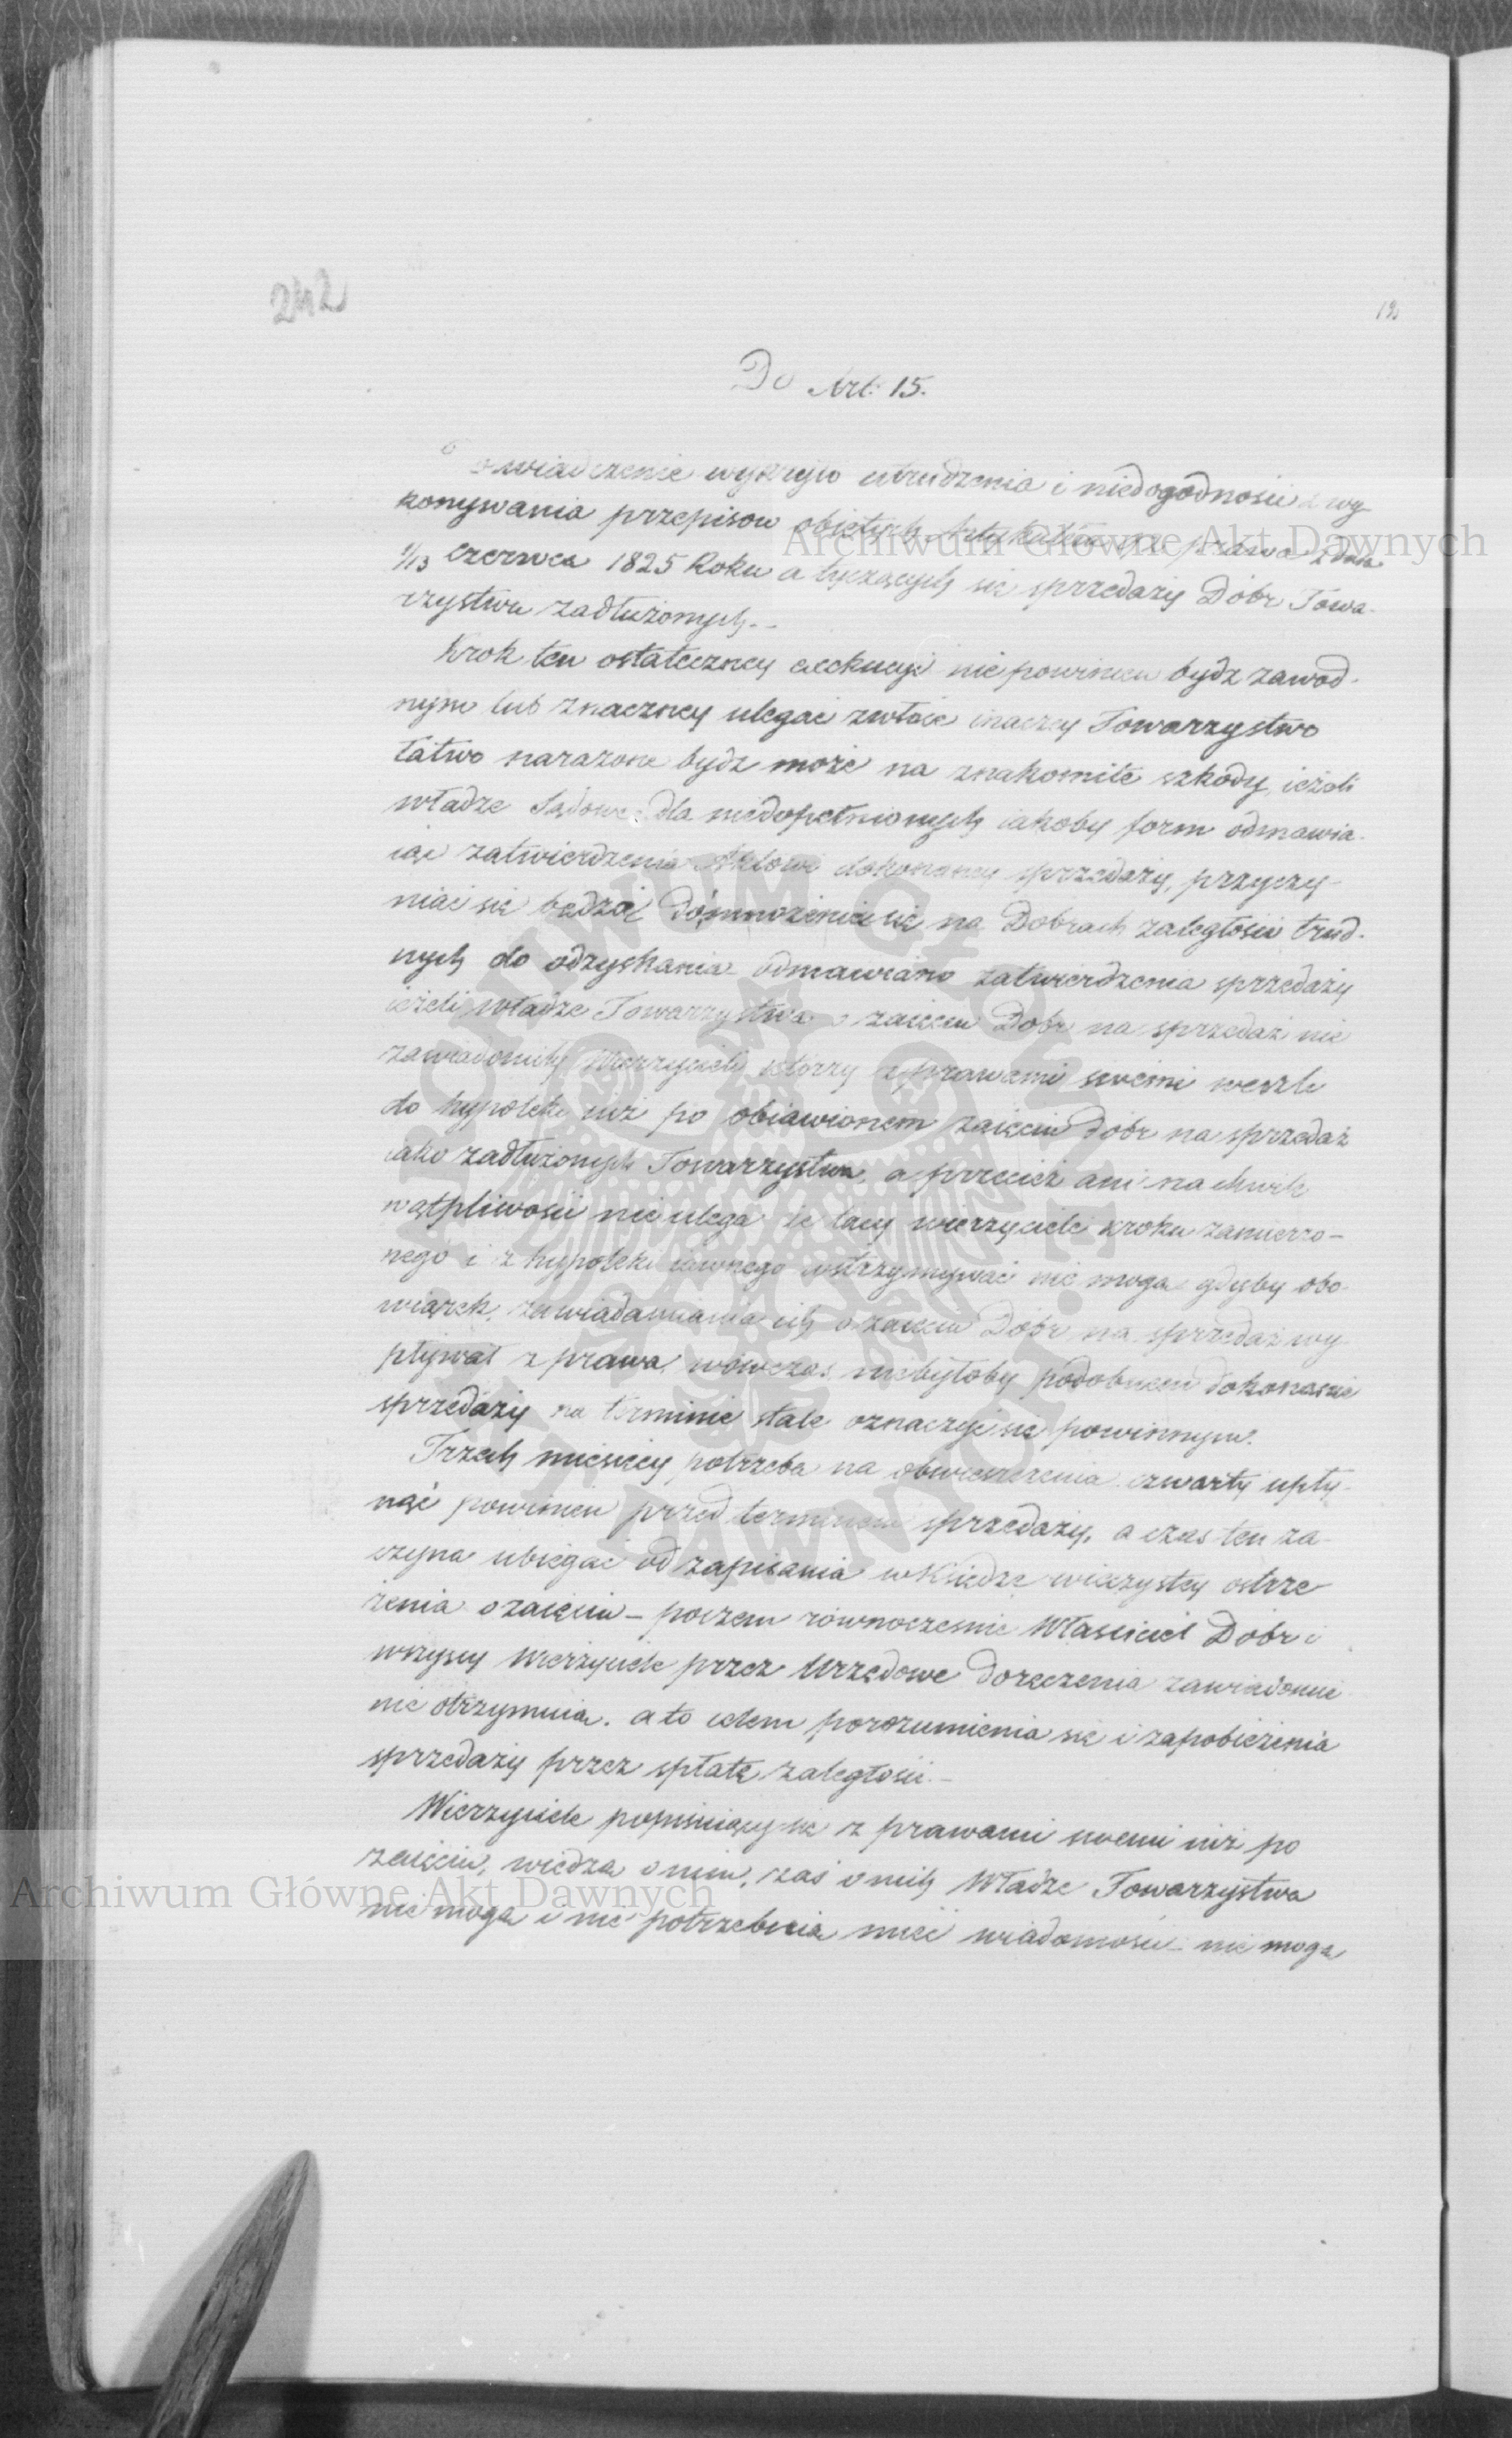 242
12
Do Art: 15.
Doswiadczenie wykryło utrudzenia i niedogodności z wy-
konywania przepisow obiętych Artykułem prawa z dnia
1/13 Czerwca 1825 Roku a tyczących się sprzedaży Dobr Towa-
rzystwu zadłużonych.-
Krok ten ostateczney exekucyi nie powinien bydz zawod-
nym lub znaczney ulegac zwłoce inaczey Towarzystwo
łatwo narazone bydz może na znakomite szkody, ieżeli
władze Sądowe dla niedopełnionych iakoby form odmawia-
iąc zatwierdzenia Aktowi dokonaney sprzedaży, przyczy-
niać się będzie do mnożenia się na Dobrach zaległości trud-
nych do odzyskania odmawiano zatwierdzenia sprzedaży
ieżeli władze Towarzystwa o zaięciu Dobr na sprzedaż nie
zawiadomiły Wierzycieli którzy z prawami swemi weszli
do hypoteki iuż po obiawionem zaięciu Dobr na sprzedaż
iako zadłużonych Towarzystwu, a przecież ani na chwile
wątpliwości nie ulega że tacy wierzyciele kroku zamierzo-
nego i z hypoteki iawnego wstrzymywać nie mogą gdyby obo-
wiązek zawiadamiania ich o zaięciu Dóbr na sprzedaż wy-
pływał z prawa, wówczas niebyłoby podobnem dokonanie
sprzedaży na terminie stale oznaczyć się powinnym.
Trzech miesięcy potrzeba na obwieszczenia czwarty upły-
nąć powinien przed terminem sprzedaży, a czas ten za-
czyna ubiegać od zapisania w Księdze wieczystey ostrze
żenia o zaięciu - poczem równocześnie Właściciel Dóbr i
wszyscy Wierzyciele przez Urzędowe doręczenia zawiadomie
nie otrzymuia. a to celem porozumienia się i zapobieżenia
sprzedaży przez spłatę zaległości.-
Wierzyciele popisuiący się z prawami swemi iuż po
zaięciu, wiedza o nim, zaś o nich Władze Towarzystwa
nie mogą i nie potrzebuia mieć wiadomości - nie mogą
Archiwum Główne Akt Dawnych
Archiwum Główne Akt Dawnych
ARCHIWUM GŁÓWNE AKT DAWNYCH